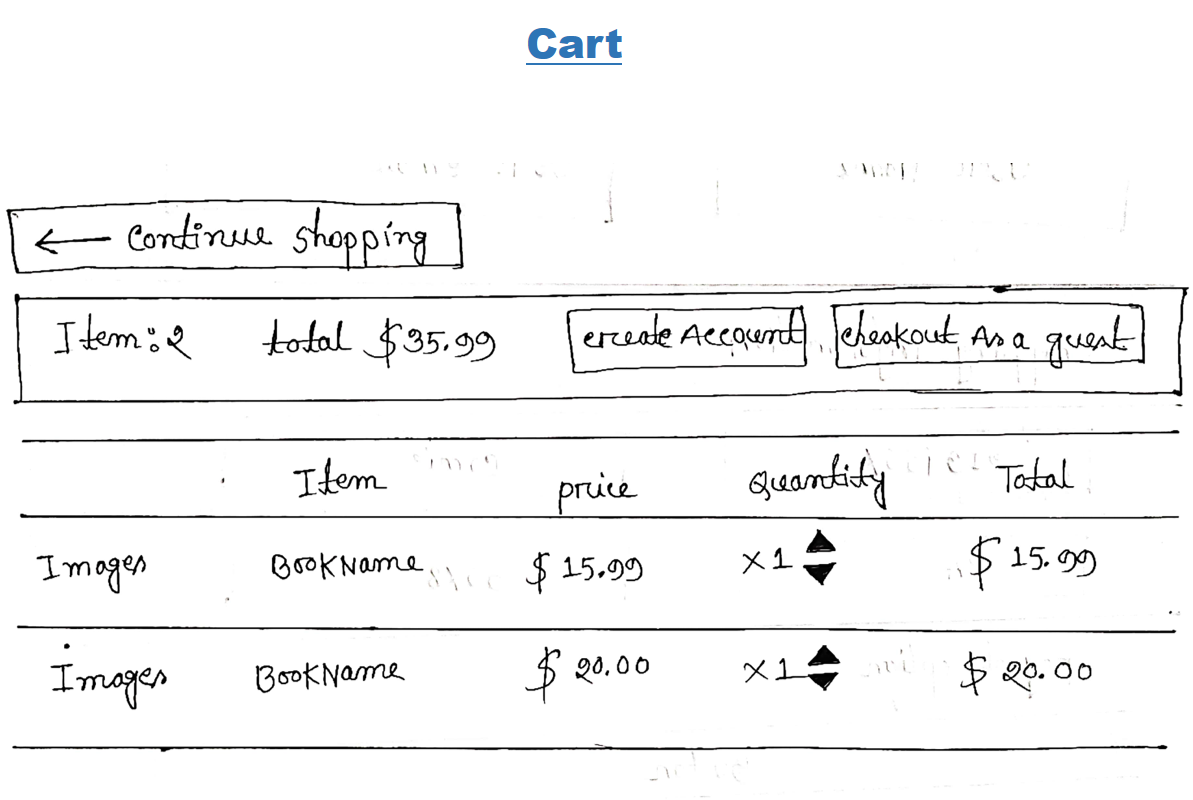 Cart
← Continue shopping
Item: 2 total $35.99 create Account checkout As a guest
Item price Quantity Total
Images BookName $ 15.99 x 1 $ 15.99
Images BookName $ 20.00 x 1 $ 20.00